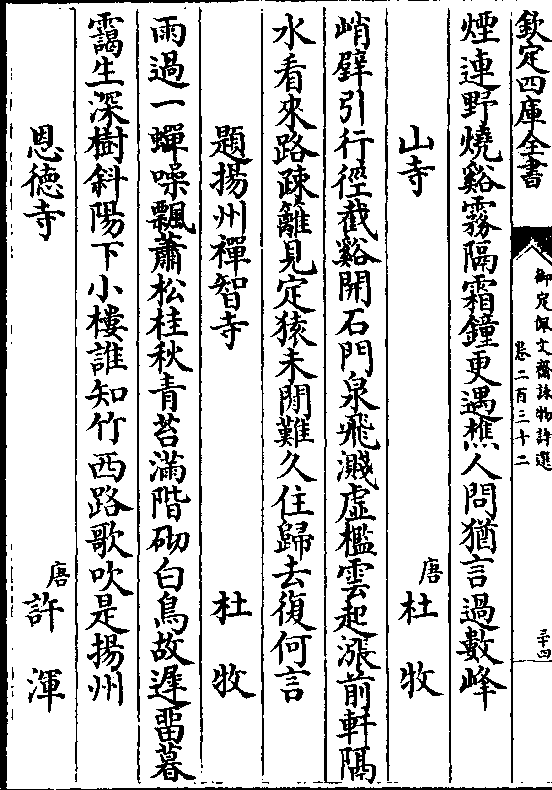 欽定四庫全書
御定佩文齋詠物詩選
卷二百三十二
二十四
煙連野燒谿霧隔霜鐘更遇樵人問猶言過數峰
山寺 唐 杜牧
峭壁引行徑截谿開石門泉飛濺虛檻雲起漲前軒隔
水看來路疎籬見定猿未閒難久住歸去復何言
題揚州禪智寺 杜牧
雨過一蟬噪飄蕭松桂秋青苔滿階砌白鳥故遲畱暮
靄生深樹斜陽下小樓誰知竹西路歌吹是揚州
恩德寺 唐 許渾